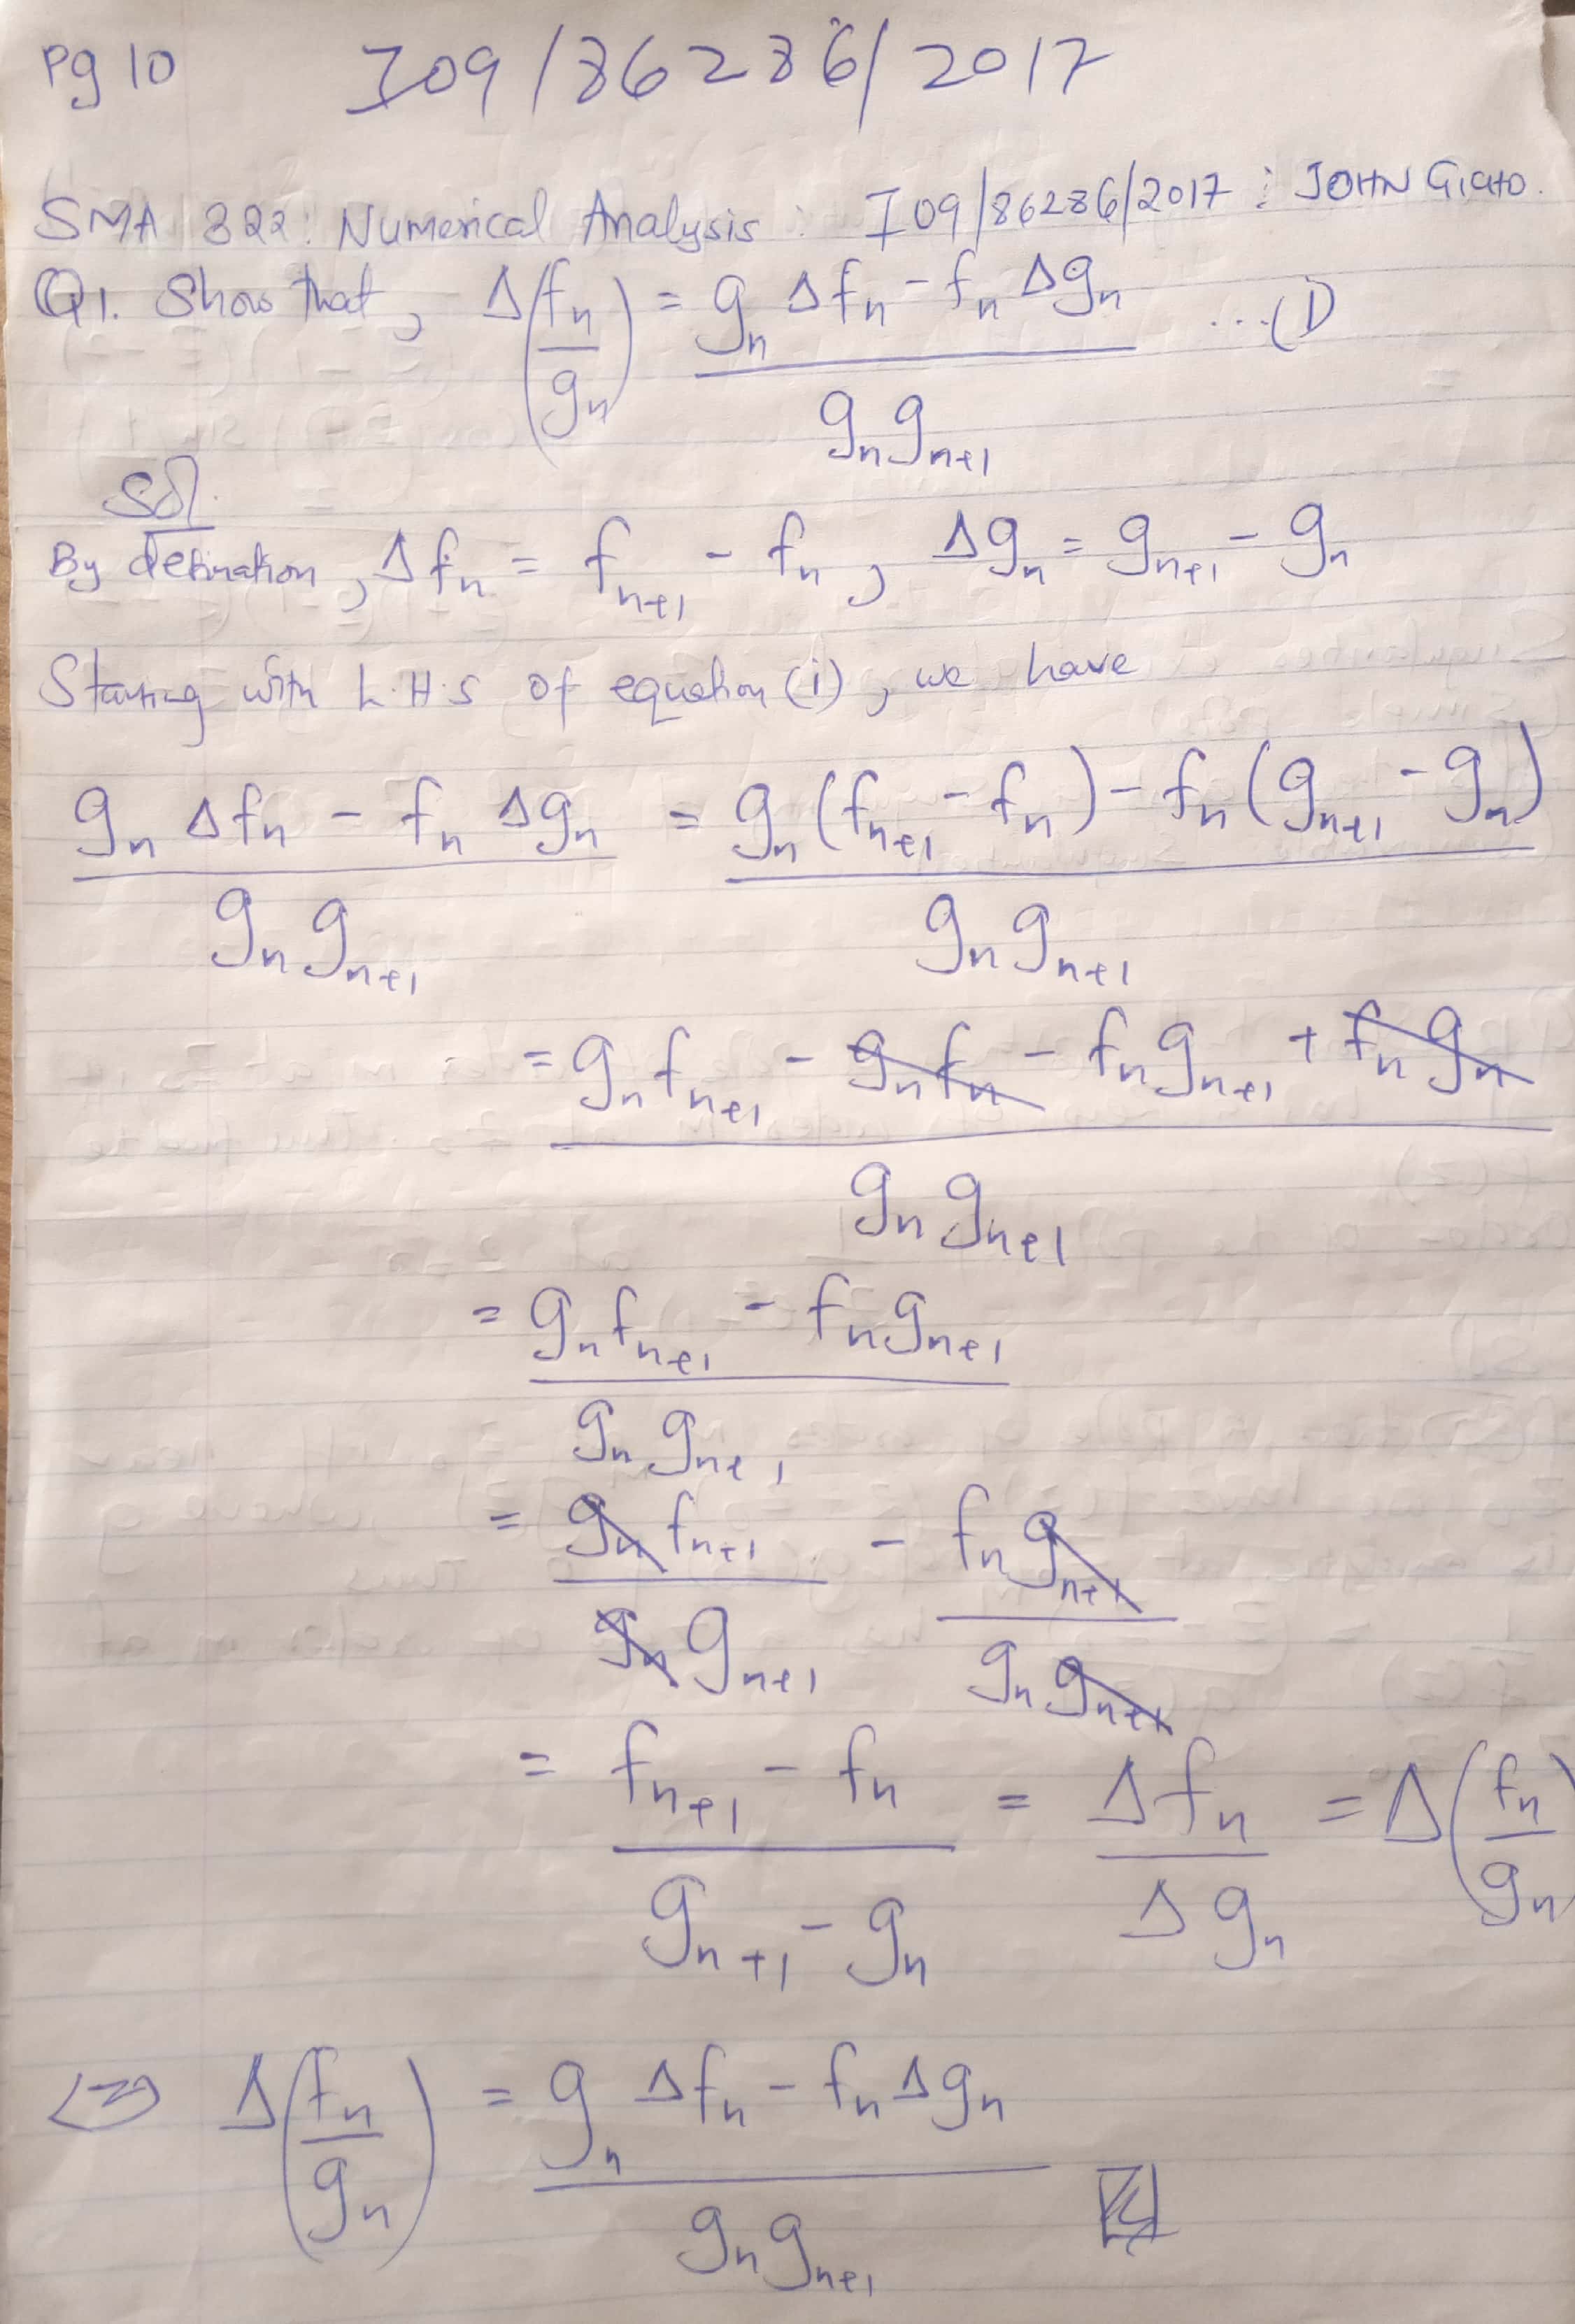 Pg 10 I09/86286/2017
SMA 322: Numerical Analysis : I09/86286/2017 : JOHN GICHO.
Q1. Show that, Δ(fₙ/gₙ) = (gₙ Δfₙ - fₙ Δgₙ)/(gₙ gₙ₊₁) ...(i)
Sol.
By defination, Δfₙ = fₙ₊₁ - fₙ, Δgₙ = gₙ₊₁ - gₙ
Starting with L.H.S of equation (i), we have
(gₙ Δfₙ - fₙ Δgₙ)/(gₙ gₙ₊₁) = (gₙ(fₙ₊₁ - fₙ) - fₙ(gₙ₊₁ - gₙ))/(gₙ gₙ₊₁)
= (gₙfₙ₊₁ - gₙfₙ - fₙgₙ₊₁ + fₙgₙ)/(gₙ gₙ₊₁)
= (gₙfₙ₊₁ - fₙgₙ₊₁)/(gₙ gₙ₊₁)
= (gₙfₙ₊₁)/(gₙ gₙ₊₁) - (fₙgₙ₊₁)/(gₙ gₙ₊₁)
= (fₙ₊₁ - fₙ)/(gₙ₊₁ - gₙ) = Δfₙ/Δgₙ = Δ(fₙ/gₙ)
⇔ Δ(fₙ/gₙ) = (gₙ Δfₙ - fₙ Δgₙ)/(gₙ gₙ₊₁)